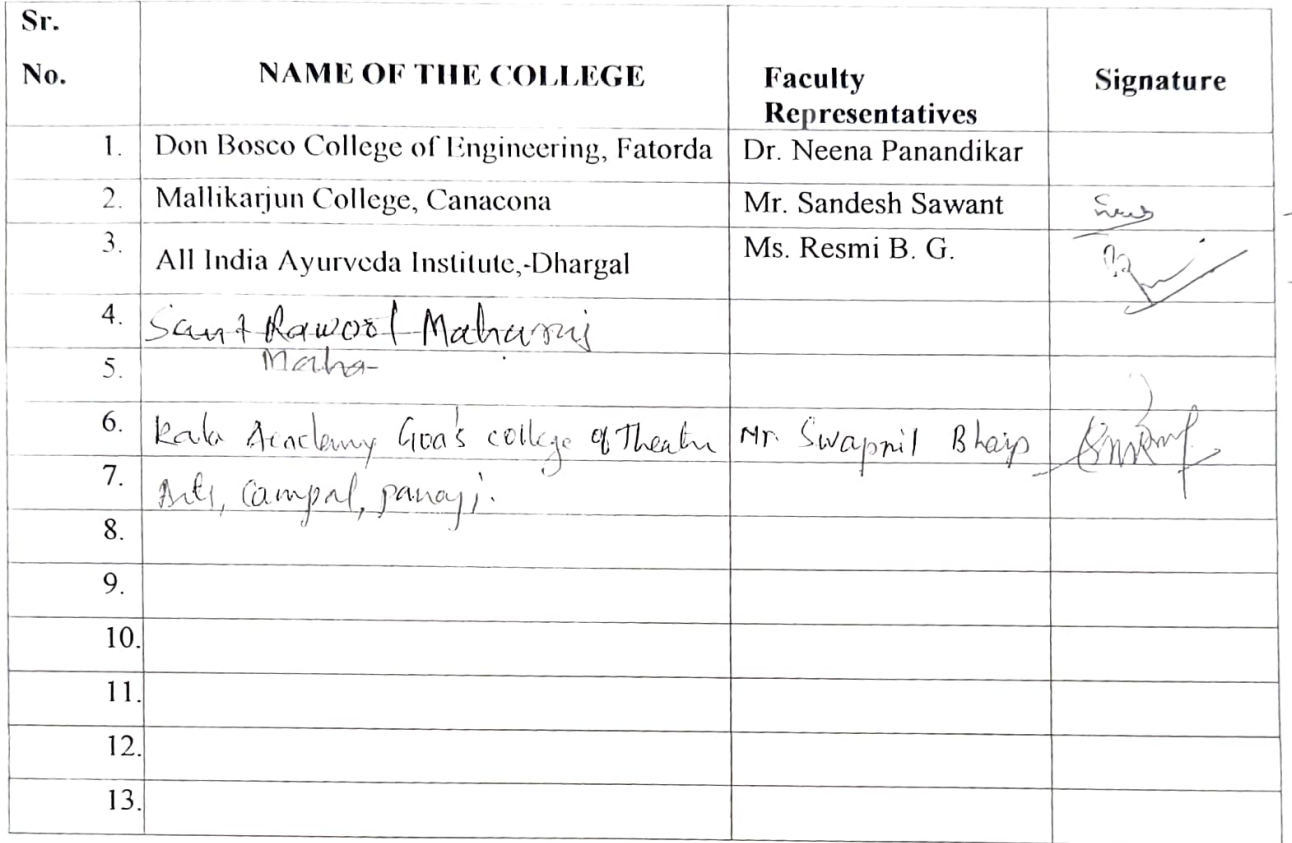 Sr.
No. NAME OF THE COLLEGE Faculty Representatives Signature
1. Don Bosco College of Engineering, Fatorda Dr. Neena Panandikar
2. Mallikarjun College, Canacona Mr. Sandesh Sawant
3. All India Ayurveda Institute,-Dhargal Ms. Resmi B. G.
4. Sant Rawool Maharaj
5. Maha-
6. Kala Academy Goa's college of Theatre Mr. Swapnil Bhaip
7. Arts, Campal, panaji.
8.
9.
10.
11.
12.
13.